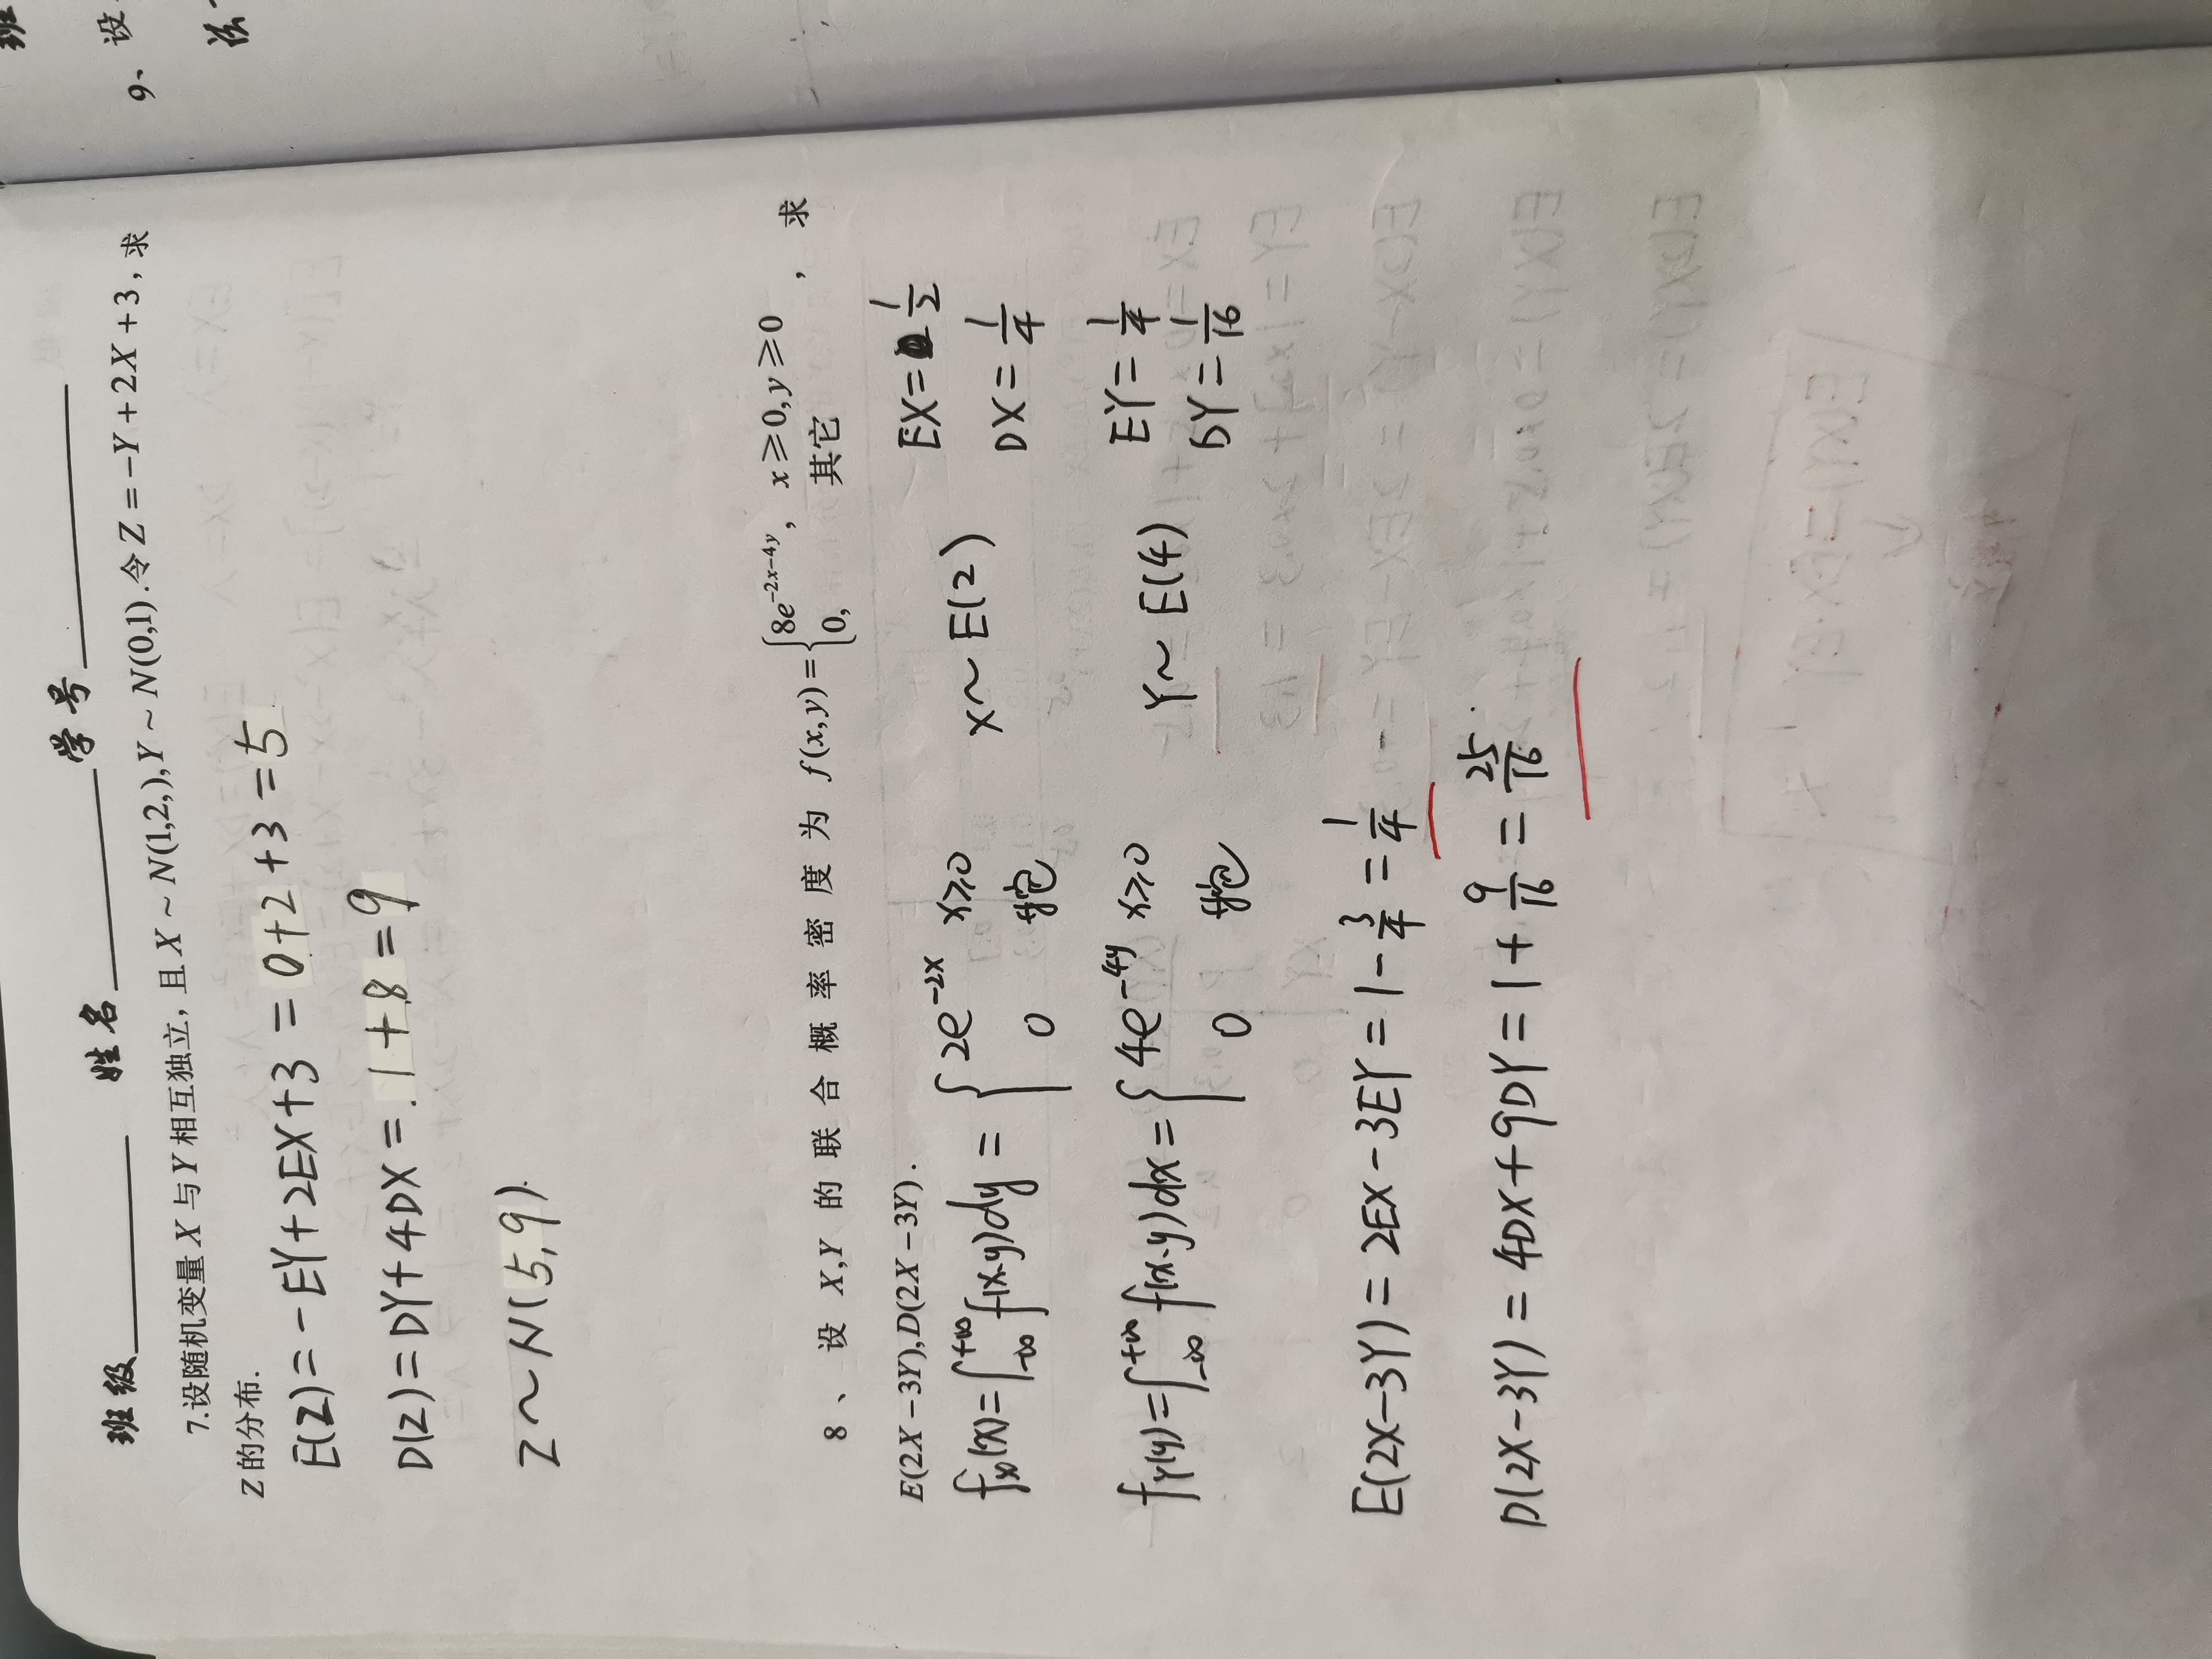 班级 姓名 学号
7.设随机变量 X 与 Y 相互独立, 且 X ~ N(1,2,),Y ~ N(0,1).令 Z = −Y + 2X + 3, 求
Z 的分布.
E(Z) = - EY + 2EX + 3 = 0+2+3 = 5
D(Z) = DY + 4DX = 1+8 = 9
Z ~ N(5,9).
8、设 X,Y 的联合概率密度为 f(x,y) = { 8e^{-2x-4y}, x ≥ 0, y ≥ 0
0, 其它 , 求
E(2X − 3Y), D(2X − 3Y).
f_X(x) = ∫_{-∞}^{+∞} f(x,y)dy = { 2e^{-2x} x≥0 X ~ E(2) EX = 1/2
0 其它 DX = 1/4
f_Y(y) = ∫_{-∞}^{+∞} f(x,y)dx = { 4e^{-4y} x≥0 Y ~ E(4) EY = 1/4
0 其它 DY = 1/16
E(2X-3Y) = 2EX - 3EY = 1 - 3/4 = 1/4
D(2X-3Y) = 4DX + 9DY = 1 + 9/16 = 25/16.
9、设